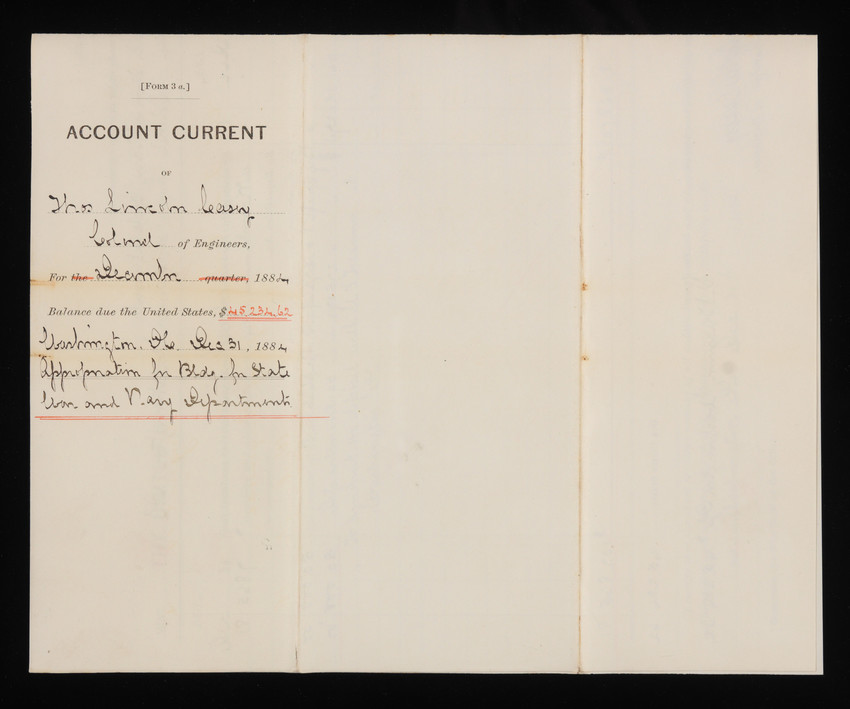 [FORM 3 a.]
ACCOUNT CURRENT
OF
Thos Lincoln Casey
Colonel of Engineers,
For the December quarter, 1884
Balance due the United States, $45,234.62
Washington, D.C. Dec 31, 1884
Appropriation for Bldg. for State
War and Navy Departments